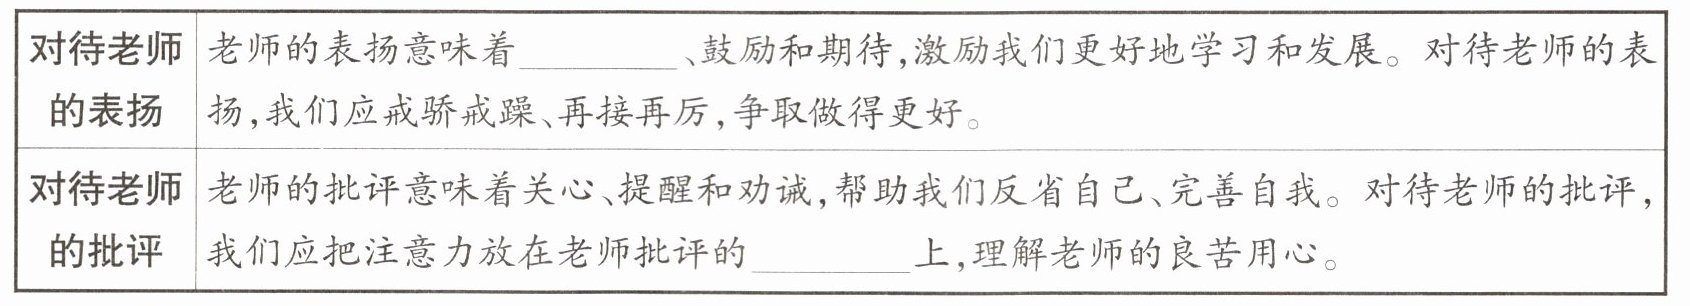 对待老师的表扬
老师的表扬意味着__________、鼓励和期待,激励我们更好地学习和发展。对待老师的表
扬,我们应戒骄戒躁、再接再厉,争取做得更好。
对待老师的批评
老师的批评意味着关心、提醒和劝诫,帮助我们反省自己、完善自我。对待老师的批评,
我们应把注意力放在老师批评的__________上,理解老师的良苦用心。